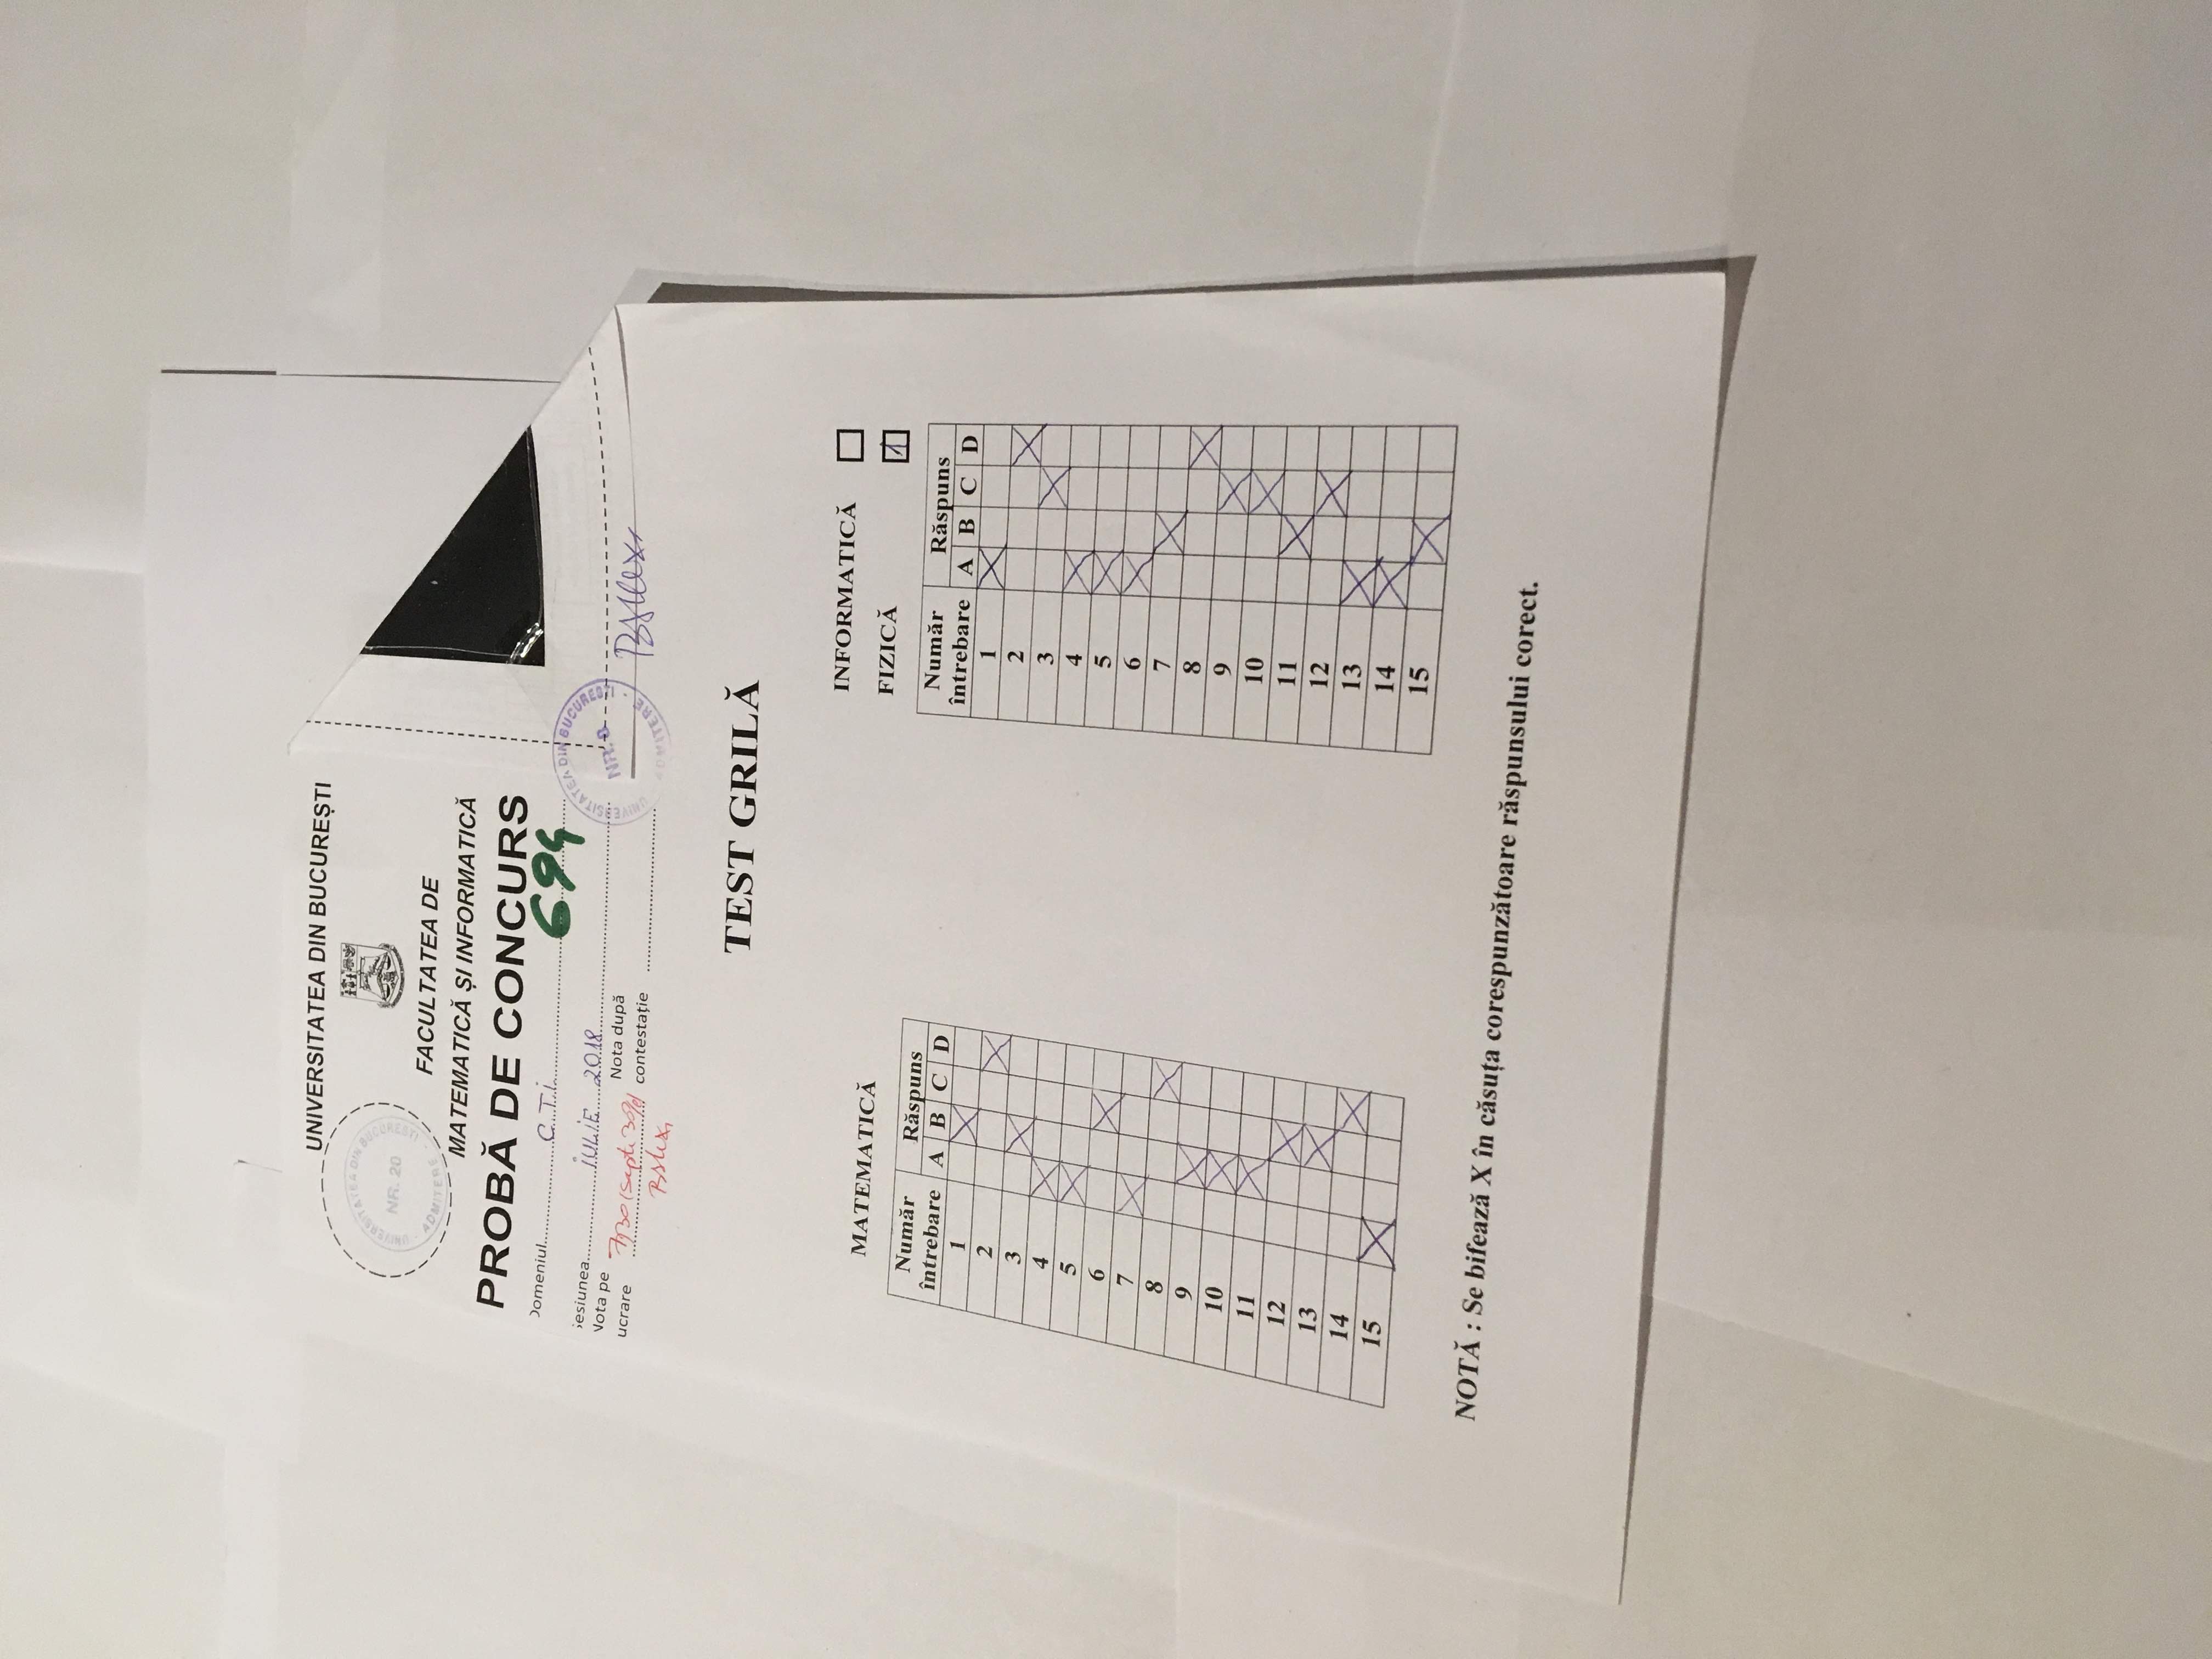 UNIVERSITATEA DIN BUCUREȘTI
UNIVERSITATEA DIN BUCURESTI
NR. 20
ADMITERE
FACULTATEA DE
MATEMATICĂ ȘI INFORMATICĂ
PROBĂ DE CONCURS
Domeniul C.T.I. 694
Sesiunea IULIE 2018
Nota pe lucrare 7,30 (șapte 30%)
Nota după contestație
UNIVERSITATEA DIN BUCURESTI
ADMITERE
TEST GRILĂ
MATEMATICĂ
Număr întrebare Răspuns
A B C D
1 X
2 X
3 X
4 X
5 X
6 X
7 X
8 X
9 X
10 X
11 X
12 X
13 X
14 X
15 X
INFORMATICĂ
FIZICĂ
Număr întrebare Răspuns
A B C D
1 X
2 X
3 X
4 X
5 X
6 X
7 X
8 X
9 X
10 X
11 X
12 X
13 X
14 X
15 X
NOTĂ : Se bifează X în căsuța corespunzătoare răspunsului corect.